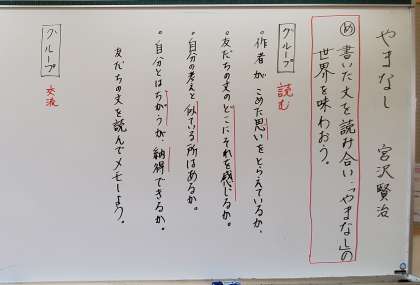 やまなし　宮沢賢治
め 書いた文を読み合い、「やまなし」の
世界を味わおう。
グループ 読む
・作者がこめた思いをとらえているか。
・友だちの文のどこにそれを感じるか。
・自分の考えと似ている所はあるか。
・自分とはちがうが、納得できるか。
友だちの文を読んでメモしよう。
グループ 交流